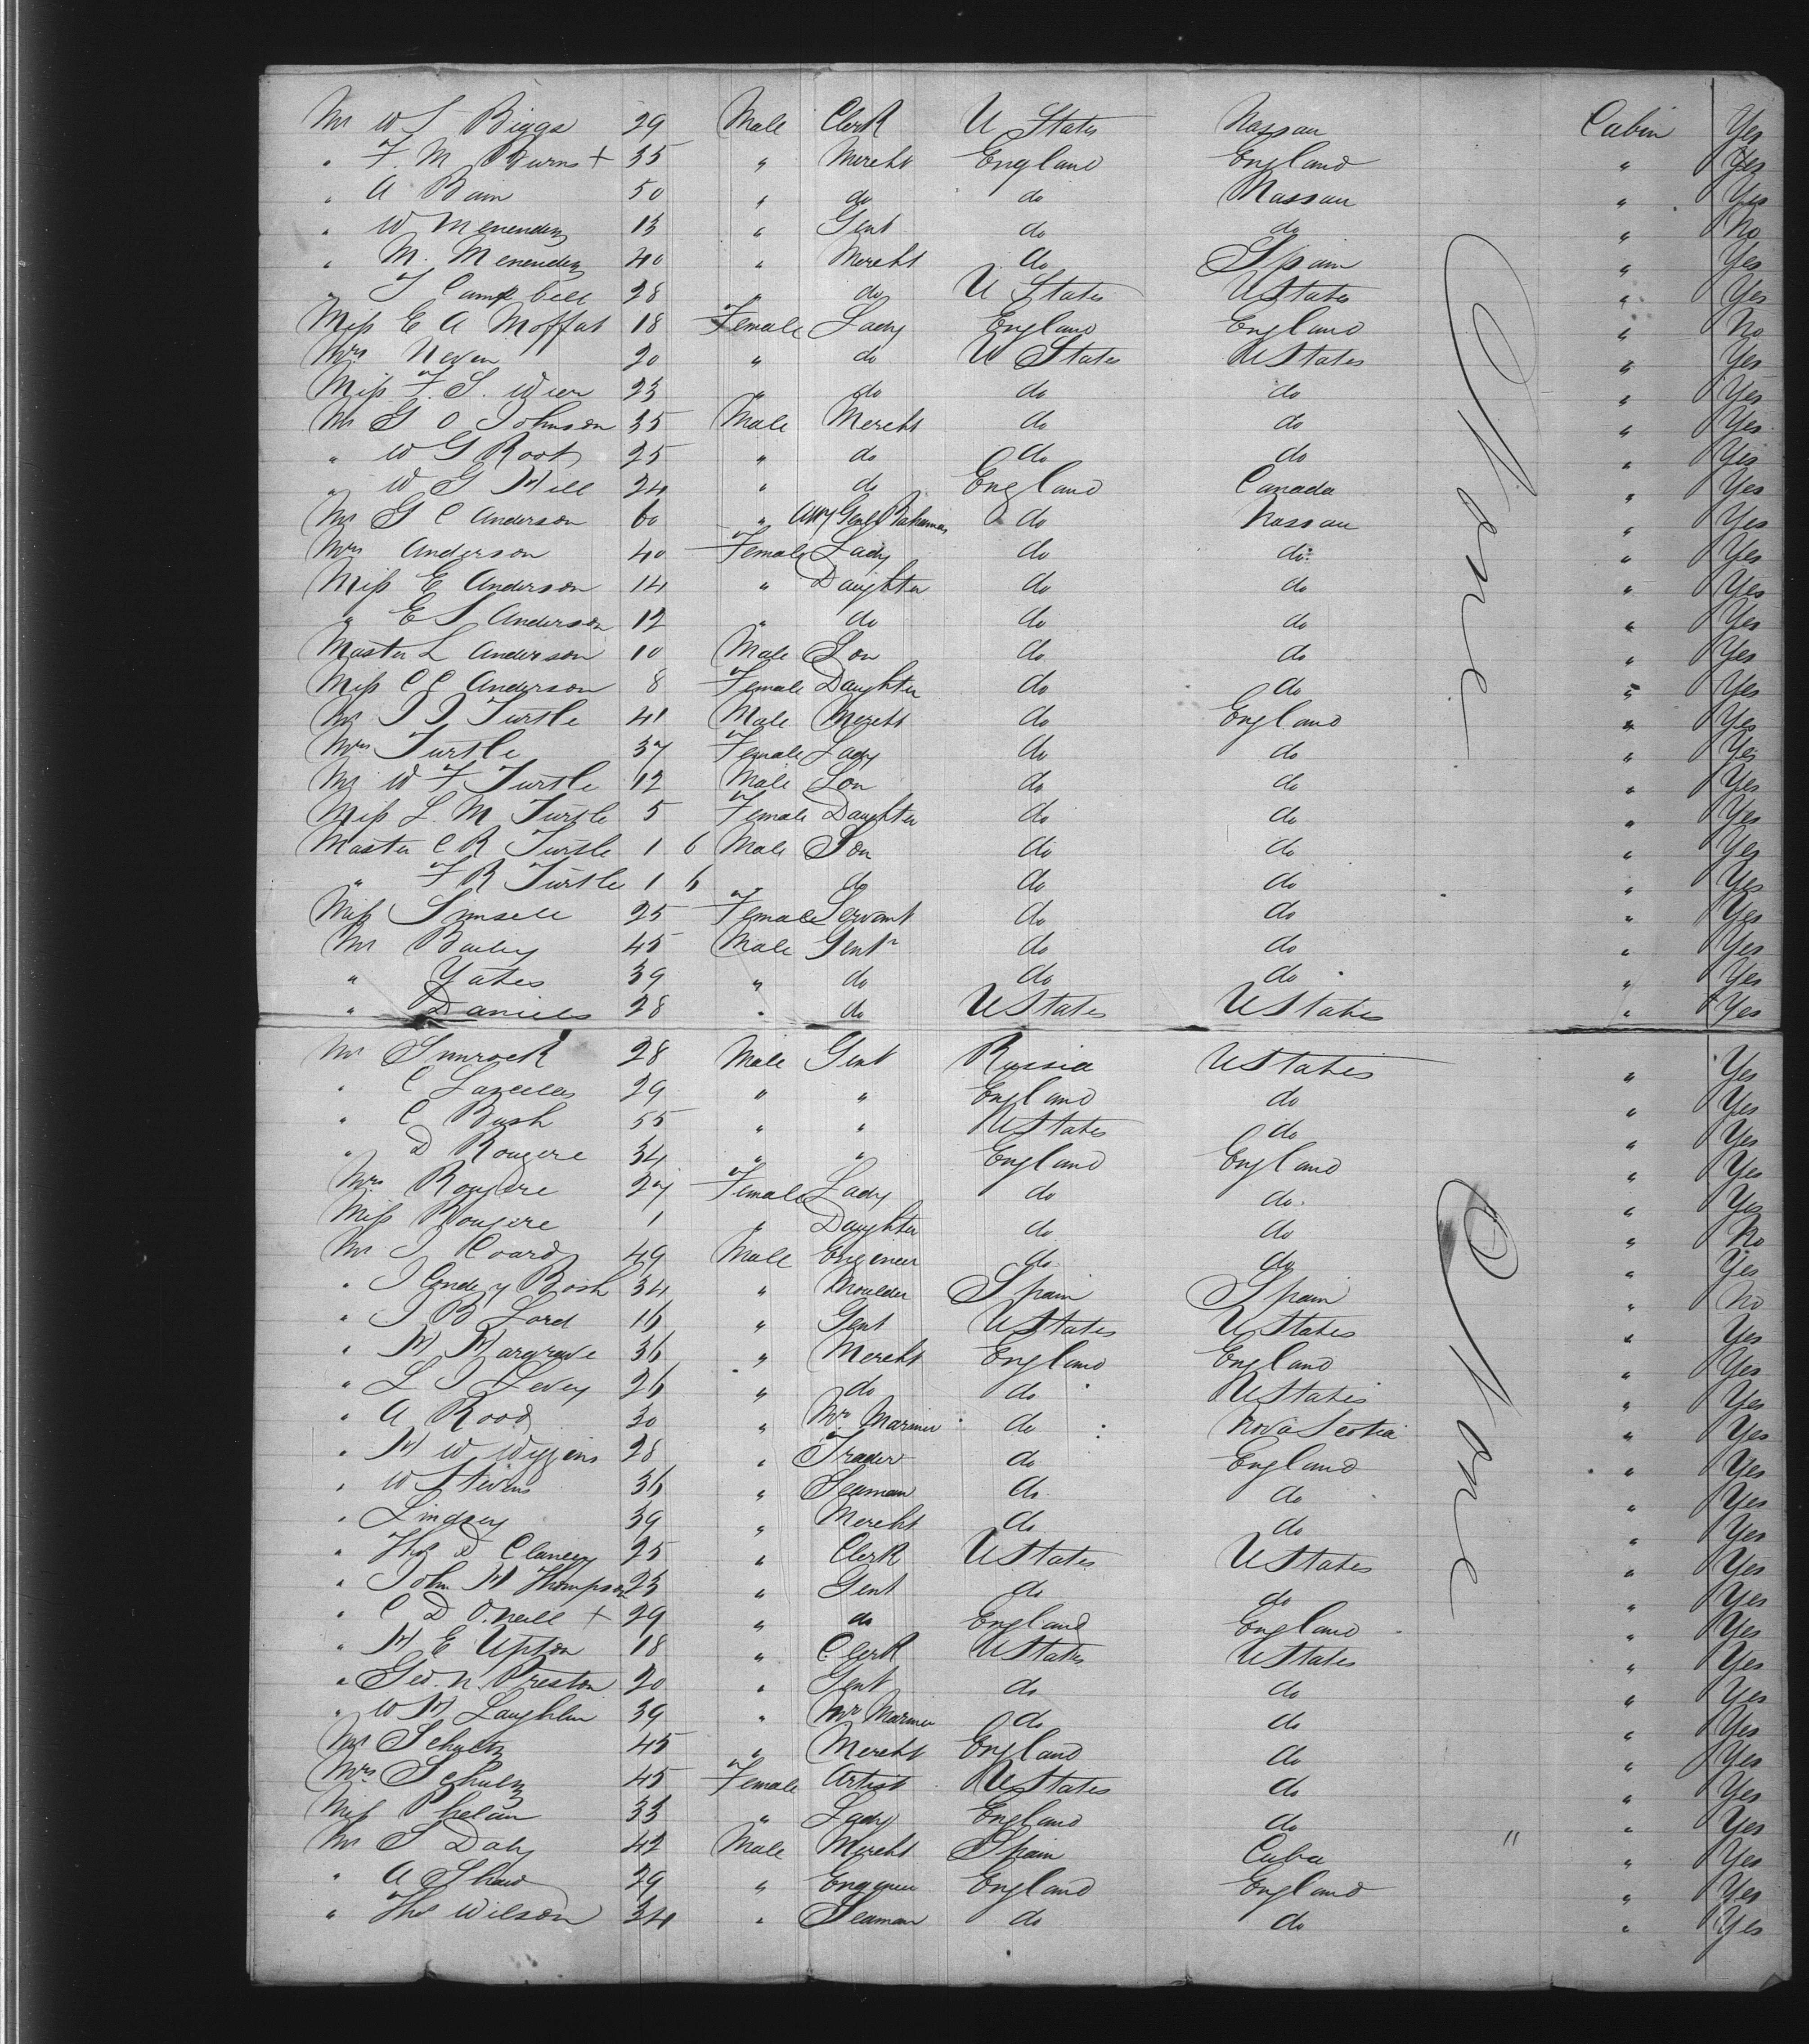 Mr W S Biggs 29 Male Clerk U States Nassau Cabin Yes
" F. M Burns + 35 " Mercht England England " Yes
" A Bain 50 " do do Nassau " Yes
" W Menendez 13 " Gent do do " No
" M. Menendez 40 " Mercht do Spain " Yes
" T Campbell 28 " do U States U States " Yes
Miss E A Moffat 18 Female Lady England England " No
Mrs Neven 20 " do U States U States " Yes
Miss F. S. Wier 23 " do do do " Yes
Mr G O Johnson 35 Male Mercht do do " Yes
" W G Root 25 " do do do " Yes
" W G Hill 24 " do England Canada " Yes
Mr G C Anderson 60 " Atty Genl Bahamas do Nassau " Yes
Mrs Anderson 40 Female Lady do do " Yes
Miss E Anderson 14 " Daughter do do " Yes
" E S Anderson 12 " do do do " Yes
Master L Anderson 10 Male Son do do " Yes
Miss C C Anderson 8 Female Daughter do do " Yes
Mr J J Turtle 41 Male Mercht do England " Yes
Mrs Turtle 37 Female Lady do do " Yes
Mr W F Turtle 12 Male Son do do " Yes
Miss L. M Turtle 5 Female Daughter do do " Yes
Master C R Turtle 1 6 Male Son do do " Yes
" F R Turtle 1 6 " do do do " Yes
Miss 25 Female Servant do do " Yes
Mr Bailey 45 Male Gent do do " Yes
" Yates 39 " do do do " Yes
" Daniels 28 " do U States U States " Yes
None
Mr Simrock 28 Male Gent Russia U States " Yes
" C Lascelles 29 " " England do " Yes
" C Bush 55 " " U States do " Yes
" D Rougere 34 " " England England " Yes
Mrs Rougere 27 Female Lady do do " Yes
Miss Rougere 1 " Daughter do do " No
Mr J Coard 49 Male Engineer do do " Yes
" J Conde y Bosh 34 " Moulder Spain Spain " No
" J B Lord 16 " Gent U States U States " Yes
" H Hargrave 36 " Mercht England England " Yes
" L J Levey 26 " do do U States " Yes
" A Rood 30 " Mr Mariner do Nova Scotia " Yes
" H W Wiggins 28 " Trader do England " Yes
" W Stevens 36 " Seaman do do " Yes
" Lindsey 39 " Mercht do do " Yes
" Thos D Clancy 25 " Clerk U States U States " Yes
" John H Thompson 23 " Gent do do " Yes
" C D O.Neill + 29 " do England England " Yes
" H E Upton 18 " Clerk U States U States " Yes
" Geo. N. Preston 20 " Gent do do " Yes
" W H Laughlin 39 " Mr Mariner do do " Yes
Mr Schultz 45 " Mercht England do " Yes
Mrs Schulz 45 Female Artist U States do " Yes
Miss Phelan 33 " Lady England do " Yes
Mr S Daly 42 Male Mercht Spain Cuba " " Yes
" A Shaw 29 " Engineer England England " Yes
" Thos Wilson 34 " Seaman do do " Yes
None